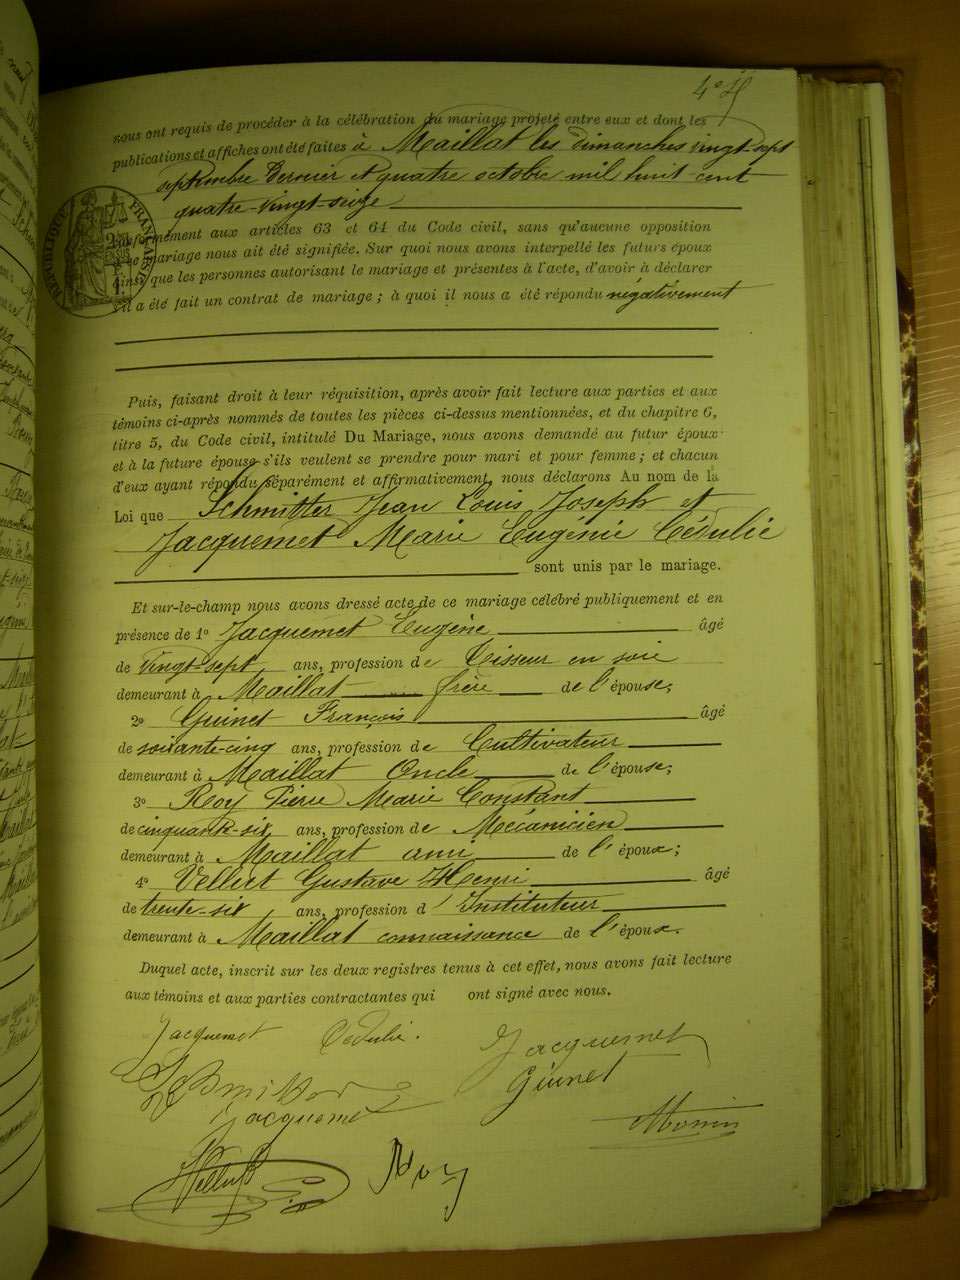 nous ont requis de procéder à la célébration du mariage projeté entre eux et dont les
publications et affiches ont été faites à Maillat les dimanches vingt-sept
septembre dernier et quatre octobre mil huit cent
quatre-vingt-seize
RÉPUBLIQUE FRANÇAISE
conformément aux articles 63 et 64 du Code civil, sans qu'aucune opposition
à ce mariage nous ait été signifiée. Sur quoi nous avons interpellé les futurs époux
ainsi que les personnes autorisant le mariage et présentes à l'acte, d'avoir à déclarer
s'il a été fait un contrat de mariage ; à quoi il nous a été répondu négativement
Puis, faisant droit à leur réquisition, après avoir fait lecture aux parties et aux
témoins ci-après nommés de toutes les pièces ci-dessus mentionnées, et du chapitre 6,
titre 5, du Code civil, intitulé Du Mariage, nous avons demandé au futur époux
et à la future épouse s'ils veulent se prendre pour mari et pour femme ; et chacun
d'eux ayant répondu séparément et affirmativement, nous déclarons Au nom de la
Loi que Schmitter Jean Louis Joseph et
Jacquemet Marie Eugénie Cédulie
sont unis par le mariage.
Et sur-le-champ nous avons dressé acte de ce mariage célébré publiquement et en
présence de 1º Jacquemet Eugène âgé
de vingt-sept ans, profession de Tisseur en soie
demeurant à Maillat frère de l'épouse;
2º Guinet François âgé
de soixante-cinq ans, profession de Cultivateur
demeurant à Maillat Oncle de l'épouse;
3º Roy Pierre Marie Constant
de cinquante-six ans, profession de Mécanicien
demeurant à Maillat ami de l'époux;
4º Gustave Henri âgé
de trente-six ans, profession d'Instituteur
demeurant à Maillat connaissance de l'époux.
Duquel acte, inscrit sur les deux registres tenus à cet effet, nous avons fait lecture
aux témoins et aux parties contractantes qui ont signé avec nous.
Jacquemet Cédulie. Jacquemet
Schmitter Guinet
Jacquemet
Roy